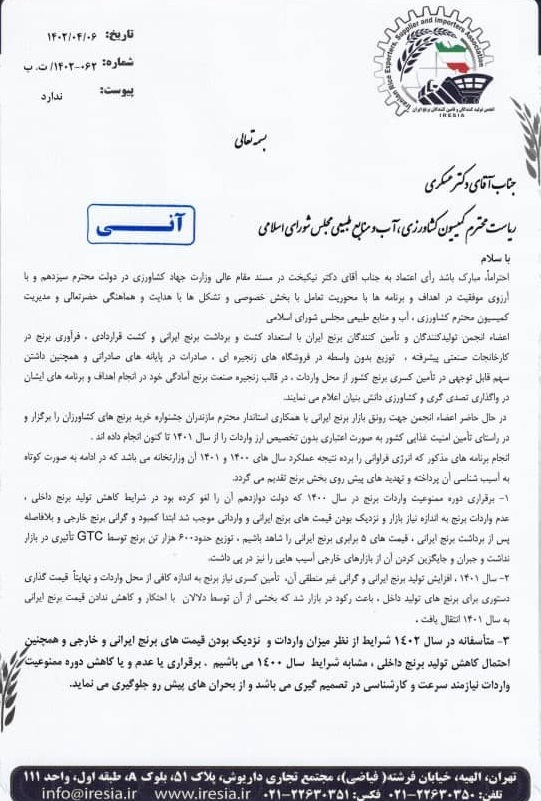 Iranian Rice Exporters, Supplier and Importers Association
انجمن تولید کنندگان و تامین کنندگان برنج ایران
IRESIA
تاریخ: ۱۴۰۲/۰۴/۰۶
شماره: ۰۶۲-۱۴۰۲/ت. ب
پیوست: ندارد
بسمه تعالی
جناب آقای دکتر عسکری
ریاست محترم کمیسیون کشاورزی، آب و منابع طبیعی مجلس شورای اسلامی
آنـــی
با سلام
احتراماً، مبارک باشد رأی اعتماد به جناب آقای دکتر نیکبخت در مسند مقام عالی وزارت جهاد کشاورزی در دولت محترم سیزدهم و با
آرزوی موفقیت در اهداف و برنامه ها با محوریت تعامل با بخش خصوصی و تشکل ها با هدایت و هماهنگی حضرتعالی و مدیریت
کمیسیون محترم کشاورزی ، آب و منابع طبیعی مجلس شورای اسلامی
اعضاء انجمن تولیدکنندگان و تأمین کنندگان برنج ایران با استعداد کشت و برداشت برنج ایرانی و کشت قراردادی ، فرآوری برنج در
کارخانجات صنعتی پیشرفته ، توزیع بدون واسطه در فروشگاه های زنجیره ای ، صادرات در پایانه های صادراتی و همچنین داشتن
سهم قابل توجهی در تأمین کسری برنج کشور از محل واردات ، در قالب زنجیره صنعت برنج آمادگی خود در انجام اهداف و برنامه های ایشان
در واگذاری تصدی گری و کشاورزی دانش بنیان اعلام می نمایند.
در حال حاضر اعضاء انجمن جهت رونق بازار برنج ایرانی با همکاری استاندار محترم مازندران جشنواره خرید برنج های کشاورزان را برگزار و
در راستای تأمین امنیت غذایی کشور به صورت اعتباری بدون تخصیص ارز واردات را از سال ۱۴۰۱ تا کنون انجام داده اند .
انجام برنامه های مذکور که انرژی فراوانی را برده نتیجه عملکرد سال های ۱۴۰۰ و ۱۴۰۱ آن وزارتخانه می باشد که در ادامه به صورت کوتاه
به آسیب شناسی آن پرداخته و تهدید های پیش روی بخش برنج تقدیم می گردد.
۱- برقراری دوره ممنوعیت واردات برنج در سال ۱۴۰۰ که دولت دوازدهم آن را لغو کرده بود در شرایط کاهش تولید برنج داخلی ،
عدم واردات برنج به اندازه نیاز بازار و نزدیک بودن قیمت های برنج ایرانی و وارداتی موجب شد ابتدا کمبود و گرانی برنج خارجی و بلافاصله
پس از برداشت برنج ایرانی ، قیمت های ۵ برابری برنج ایرانی را شاهد باشیم ، توزیع حدود۶۰۰ هزار تن برنج توسط GTC تأثیری در بازار
نداشت و جبران و جایگزین کردن آن از بازارهای خارجی آسیب هایی را نیز در پی داشت.
۲- سال ۱۴۰۱ ، افزایش تولید برنج ایرانی و گرانی غیر منطقی آن، تأمین کسری نیاز برنج به اندازه کافی از محل واردات و نهایتاً قیمت گذاری
دستوری برای برنج های تولید داخل ، باعث رکود در بازار شد که بخشی از آن توسط دلالان با احتکار و کاهش ندادن قیمت برنج ایرانی
به سال ۱۴۰۱ انتقال یافت .
۳- متأسفانه در سال ۱۴۰۲ شرایط از نظر میزان واردات و نزدیک بودن قیمت های برنج ایرانی و خارجی و همچنین
احتمال کاهش تولید برنج داخلی ، مشابه شرایط سال ۱۴۰۰ می باشیم . برقراری یا عدم و یا کاهش دوره ممنوعیت
واردات نیازمند سرعت و کارشناسی در تصمیم گیری می باشد و از بحران های پیش رو جلوگیری می نماید.
تهران، الهیه، خیابان فرشته( فیاضی)، مجتمع تجاری داریوش، پلاک ۵۱، بلوک A، طبقه اول، واحد ۱۱۱
تلفن: ۲۲۶۳۰۳۵۰-۰۲۱ فکس: ۲۲۶۳۰۳۵۱-۰۲۱ www.iresia.ir info@iresia.ir